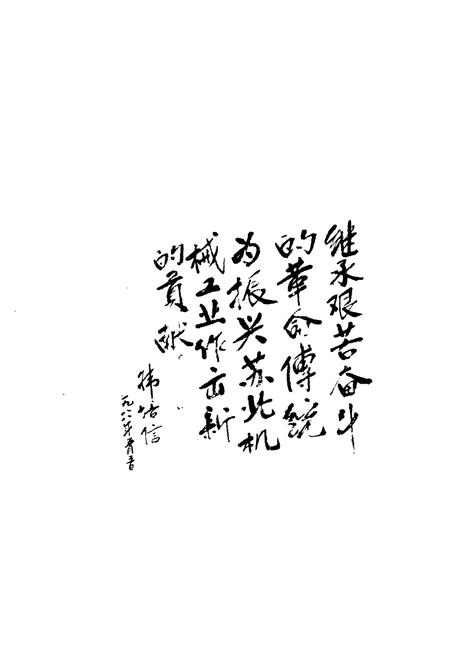 继承艰苦奋斗
的革命傳统
为振兴苏北机
械工业作出新
的贡献
韩培信
一九八年